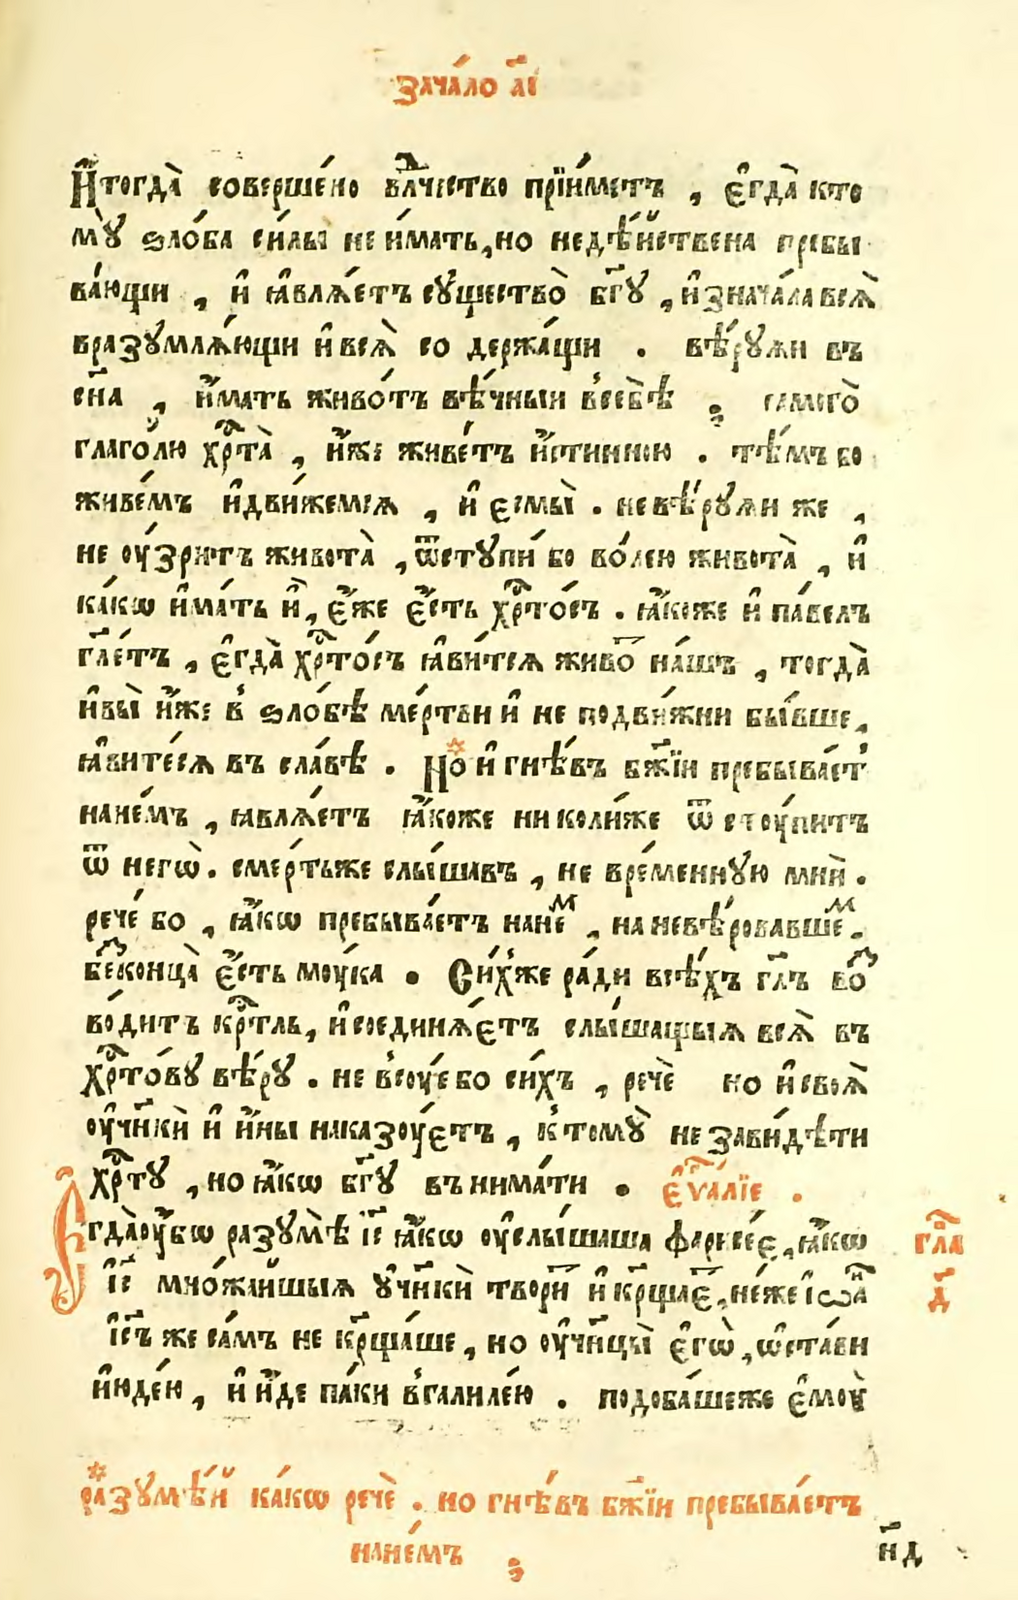 зача́ло а҃і
И҆тогда̀ совершѐно вл҇чⷭтво прїи́метъ , є҆гда̀ кто
мꙋ̀ ѕло́ба си́лы не и́мать, но недѣ́йствена пребы
ва́ющи , и҆ ꙗ҆влѧ́етъ сꙋщество̀ бг҃ꙋ , и҆знача́ла всѧ̀
вразꙋмлѧ́ющи и҆ всѧ̀ со держа́щи . вѣ́рꙋѧи въ
сн҃а , и҆́мать живо́тъ вѣ́чныи в҆ себѣ̀ , самого̀
глаго́лю хрⷭта̀ , и҆́же живе́тъ и҆́стинною . тѣ́мъ бо
живе́мъ и҆дви́жемсѧ , и҆ є҆смы̀ . невѣ́рꙋѧи же ,
не оу҆́зритъ живота̀ , ѿстꙋпи́ бо во́лею живота̀ , и҆
ка́кѡ и҆́мать и҆̀ , є҆́же є҆́сть хрⷭто́съ . ꙗ҆́коже и҆ па́велъ
гл҃етъ , є҆гда̀ хрⷭто́съ ꙗ҆ви́тсѧ живо́т на́шъ , тогда̀
и҆вы̀ и҆̀же в҆ ѕло́бѣ ме́ртви и҆ не подви́жни бы́вше ,
ꙗ҆вите́сѧ въ сла́вѣ . Но̀ и҆ гнѣ́въ бж҃їи пребыва́ет
нане́мъ , ꙗвлѧ́етъ ꙗ҆́коже ни коли́же ѿ стоу́питъ
ѿ негѡ̀ . сме́рть же слы́шавъ , не вре́меннꙋю мнѝ .
рече́ бо , ꙗ҆́кѡ пребыва́етъ нанеⷨ , на невѣ́ровавшеⷨ .
беⷥконца̀ є҆́сть моу́ка . Си́хже ра́ди всѣ́хъ гл҃ъ воⷥ
во́дитъ крⷭтль , и҆ соединѧ́етъ слы́шащыѧ всѧ̀ въ
хрⷭто́вꙋ вѣ́рꙋ . не в҆соу́е бо си́хъ , речѐ но и҆ своѧ̀
оу҆ч҃нкѝ и҆ и҆́ны наказоу́етъ , к҆ томꙋ̀ не зави́дѣти
хрⷭтꙋ , но ꙗ҆́кѡ бг҃ꙋ вънима́ти . є҆ѵⷢа́лїе .
Є҆гда̀оу҆́бѡ разꙋмѣ̀ і҆с҃ ꙗ҆́кѡ оу҆слы́шаша фарисе́є , ꙗ҆́кѡ
і҆с҃ мно́жаишыѧ оу҆ч҃нкѝ твори́т и҆ кр҃щає́т , не́же і҆ѡаⷩ
і҆с҃ъ же са́мъ не кр҃ща́ше , но оу҆ч҃нцы̀ є҆гѡ̀ , ѡ҆ста́ви
и҆юде́ю , и҆ и҆́де па́ки в҆галиле́ю . подоба́шеже є҆моу̀
гл҃а
д҃
разꙋмѣ́й ка́кѡ речѐ . но гнѣ́въ бж҃їи пребыва́етъ
нане́мъ
н҃д